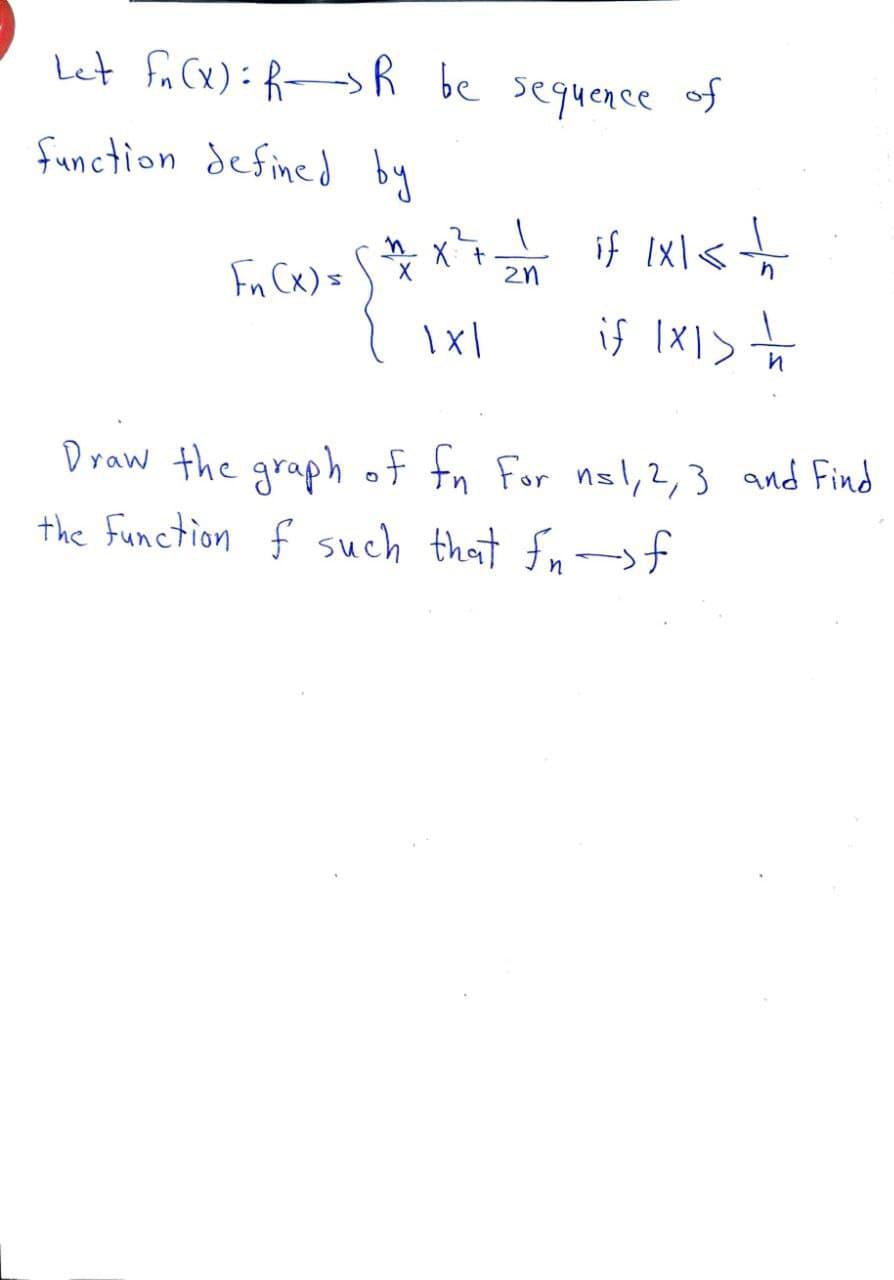 Let fn(x): R → R be sequence of
function defined by
Fn(x) = { n/x x² + 1/2n if |x| ≤ 1/n
|x| if |x| > 1/n
Draw the graph of fn For n=1,2,3 and Find
the Function f such that fn → f